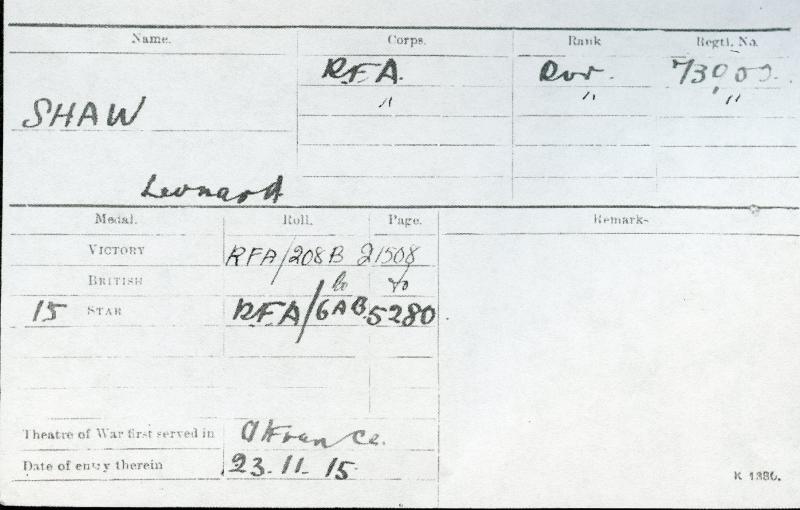 Name. Corps. Rank Regtl. No.
R.F.A. Dvr. 73903.
SHAW " " "
Leonard
Medal. Roll. Page. Remarks
VICTORY RFA/208B 21508
BRITISH do do
15 STAR R.F.A/6AB. 5280
Theatre of War first served in France.
Date of entry therein 23.11.15.
K 1380.